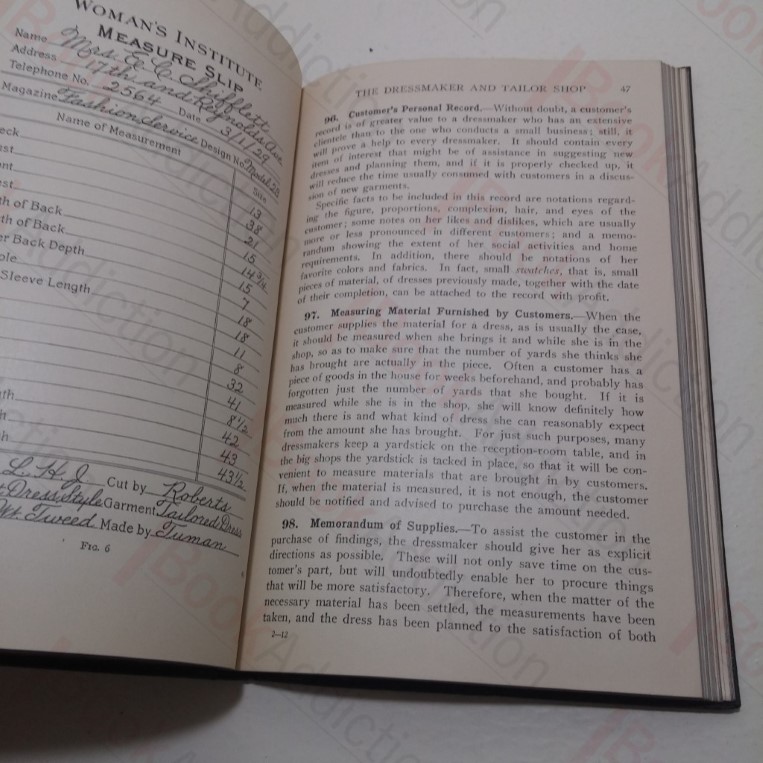 WOMAN'S INSTITUTE
MEASURE SLIP
Name Mrs. E. C. Shifflett
Address 17th and Reynolds Ave.
Telephone No. 2564 Date 3/1/29
Magazine Fashion Service Design No. Model 20
Name of Measurement Size
eck 13
st 38
nt 21
est 15
th of Back 14 3/4
th of Back 15
er Back Depth 7
ole 18
Sleeve Length 18
11
8
32
41
gth 8 1/2
th 42
th 43
43 1/2
L. H. J. Cut by Roberts
Dress Style Garment Tailored Dress
Wt. Tweed Made by Tuman
FIG. 6
THE DRESSMAKER AND TAILOR SHOP 47
96. Customer's Personal Record.—Without doubt, a customer's
record is of greater value to a dressmaker who has an extensive
clientele than to the one who conducts a small business; still, it
will prove a help to every dressmaker. It should contain every
item of interest that might be of assistance in suggesting new
dresses and planning them, and if it is properly checked up, it
will reduce the time usually consumed with customers in a discus-
sion of new garments.
Specific facts to be included in this record are notations regard-
ing the figure, proportions, complexion, hair, and eyes of the
customer; some notes on her likes and dislikes, which are usually
more or less pronounced in different customers; and a memo-
randum showing the extent of her social activities and home
requirements. In addition, there should be notations of her
favorite colors and fabrics. In fact, small swatches, that is, small
pieces of material, of dresses previously made, together with the date
of their completion, can be attached to the record with profit.
97. Measuring Material Furnished by Customers.—When the
customer supplies the material for a dress, as is usually the case,
it should be measured when she brings it and while she is in the
shop, so as to make sure that the number of yards she thinks she
has brought are actually in the piece. Often a customer has a
piece of goods in the house for weeks beforehand, and probably has
forgotten just the number of yards that she bought. If it is
measured while she is in the shop, she will know definitely how
much there is and what kind of dress she can reasonably expect
from the amount she has brought. For just such purposes, many
dressmakers keep a yardstick on the reception-room table, and in
the big shops the yardstick is tacked in place, so that it will be con-
venient to measure materials that are brought in by customers.
If, when the material is measured, it is not enough, the customer
should be notified and advised to purchase the amount needed.
98. Memorandum of Supplies.—To assist the customer in the
purchase of findings, the dressmaker should give her as explicit
directions as possible. These will not only save time on the cus-
tomer's part, but will undoubtedly enable her to procure things
that will be more satisfactory. Therefore, when the matter of the
necessary material has been settled, the measurements have been
taken, and the dress has been planned to the satisfaction of both
2—12
Book Addiction